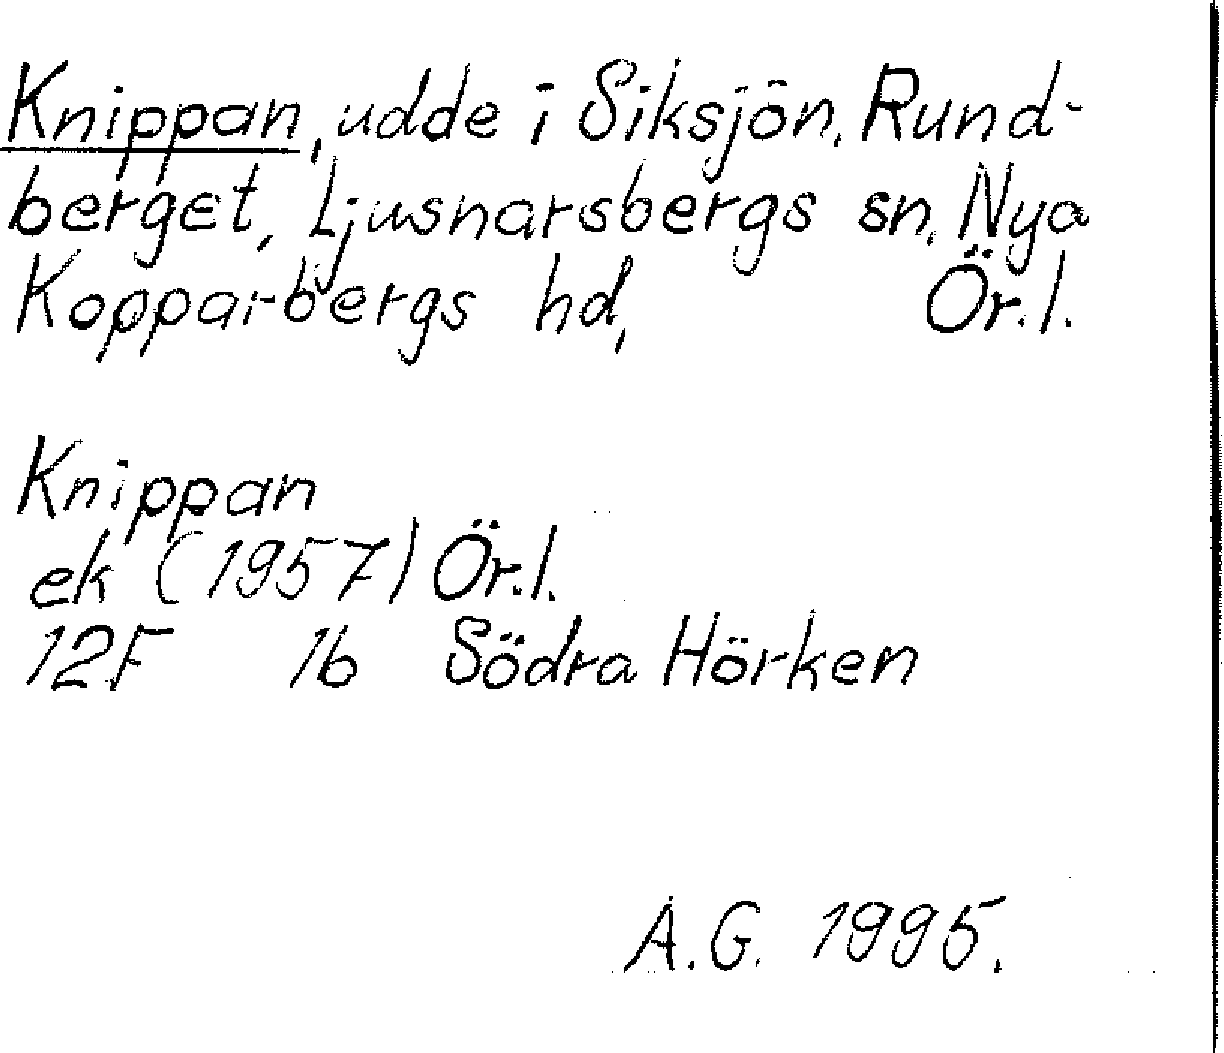 Knippan, udde i Siksjön, Rund-
berget, Ljusnarsbergs sn, Nya
Kopparbergs hd, Ör.l.
Knippan
ek (1957) Ör.l.
12F 1b Södra Hörken
A.G. 1995.